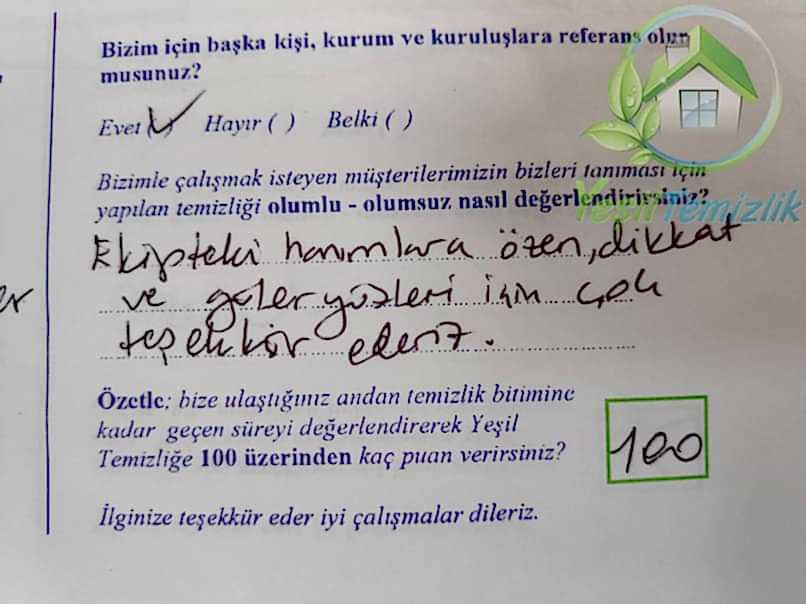 Bizim için başka kişi, kurum ve kuruluşlara referans olur
musunuz?
Evet (✓) Hayır ( ) Belki ( )
Bizimle çalışmak isteyen müşterilerimizin bizleri tanıması için
yapılan temizliği olumlu - olumsuz nasıl değerlendirirsiniz?
Yeşil Temizlik
Ekipteki hanımlara özen, dikkat
ve güler yüzleri için çok
teşekkür ederiz.
Özetle; bize ulaştığınız andan temizlik bitimine
kadar geçen süreyi değerlendirerek Yeşil
Temizliğe 100 üzerinden kaç puan verirsiniz?
100
İlginize teşekkür eder iyi çalışmalar dileriz.